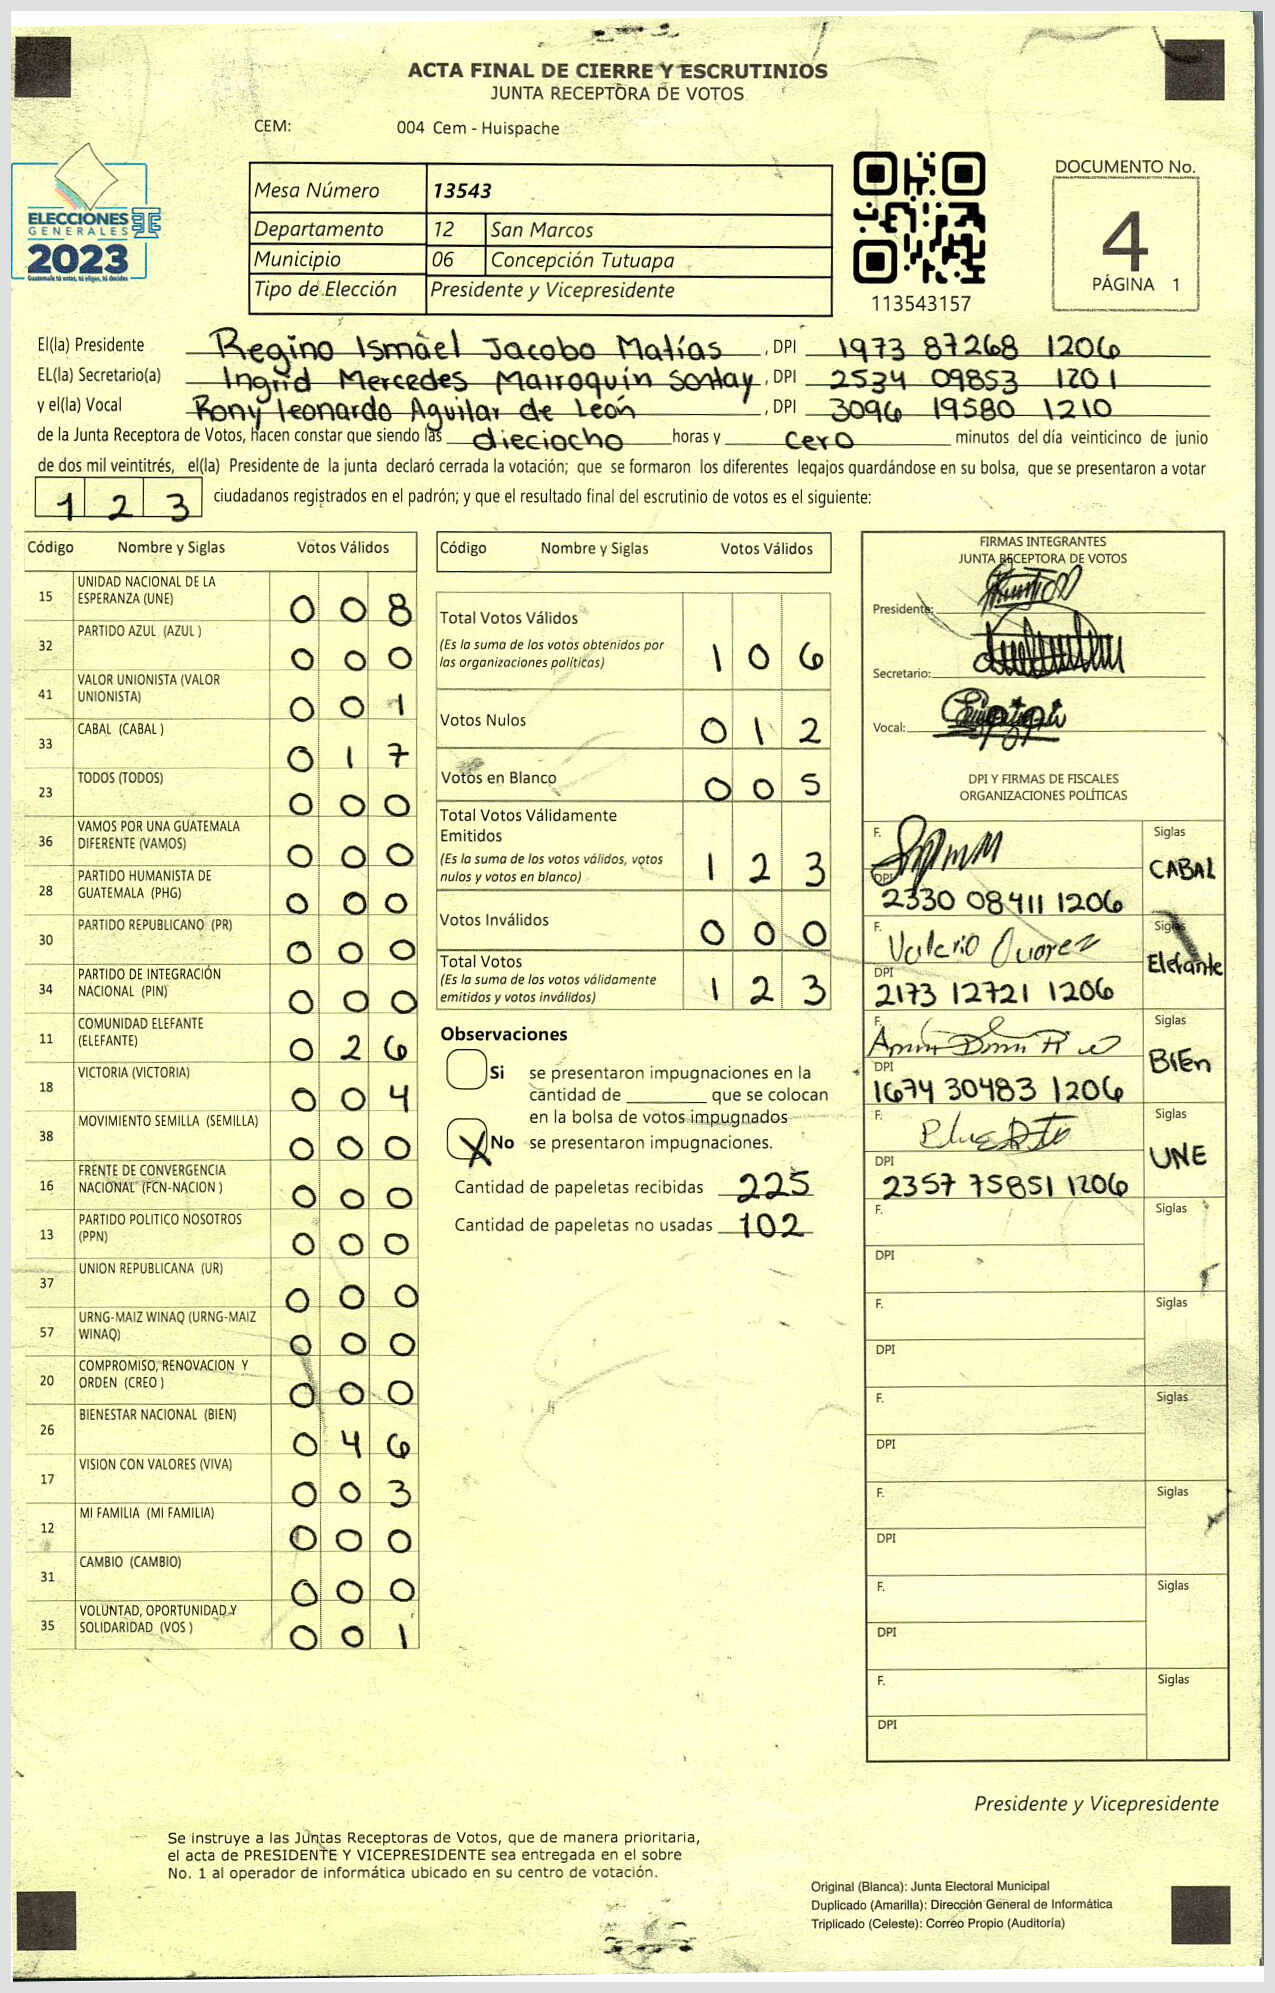 ACTA FINAL DE CIERRE Y ESCRUTINIOS
JUNTA RECEPTORA DE VOTOS
CEM: 004 Cem - Huispache
ELECCIONES
GENERALES
2023
Guatemala tú votas, tú eliges, tú decides
Mesa Número 13543
Departamento 12 San Marcos
Municipio 06 Concepción Tutuapa
Tipo de Elección Presidente y Vicepresidente
113543157
DOCUMENTO No.
4
PÁGINA 1
El(la) Presidente Regino Ismael Jacobo Matías, DPI 1973 87268 1206
EL(la) Secretario(a) Ingrid Mercedes Marroquín Sontay, DPI 2534 09853 1201
y el(la) Vocal Rony Leonardo Aguilar de León, DPI 3096 19580 1210
de la Junta Receptora de Votos, hacen constar que siendo las dieciocho horas y cero minutos del día veinticinco de junio
de dos mil veintitrés, el(la) Presidente de la junta declaró cerrada la votación; que se formaron los diferentes legajos guardándose en su bolsa, que se presentaron a votar
123 ciudadanos registrados en el padrón; y que el resultado final del escrutinio de votos es el siguiente:
Código Nombre y Siglas Votos Válidos
15 UNIDAD NACIONAL DE LA
ESPERANZA (UNE) 008
32 PARTIDO AZUL (AZUL ) 000
41 VALOR UNIONISTA (VALOR
UNIONISTA) 001
33 CABAL (CABAL ) 017
23 TODOS (TODOS) 000
36 VAMOS POR UNA GUATEMALA
DIFERENTE (VAMOS) 000
28 PARTIDO HUMANISTA DE
GUATEMALA (PHG) 000
30 PARTIDO REPUBLICANO (PR) 000
34 PARTIDO DE INTEGRACIÓN
NACIONAL (PIN) 000
11 COMUNIDAD ELEFANTE
(ELEFANTE) 026
18 VICTORIA (VICTORIA) 004
38 MOVIMIENTO SEMILLA (SEMILLA) 000
16 FRENTE DE CONVERGENCIA
NACIONAL (FCN-NACION ) 000
13 PARTIDO POLITICO NOSOTROS
(PPN) 000
37 UNION REPUBLICANA (UR) 000
57 URNG-MAIZ WINAQ (URNG-MAIZ
WINAQ) 000
20 COMPROMISO, RENOVACION Y
ORDEN (CREO ) 000
26 BIENESTAR NACIONAL (BIEN) 046
17 VISION CON VALORES (VIVA) 003
12 MI FAMILIA (MI FAMILIA) 000
31 CAMBIO (CAMBIO) 000
35 VOLUNTAD, OPORTUNIDAD Y
SOLIDARIDAD (VOS ) 001
Código Nombre y Siglas Votos Válidos
Total Votos Válidos
(Es la suma de los votos obtenidos por
las organizaciones políticas) 106
Votos Nulos 012
Votos en Blanco 005
Total Votos Válidamente
Emitidos
(Es la suma de los votos válidos, votos
nulos y votos en blanco) 123
Votos Inválidos 000
Total Votos
(Es la suma de los votos válidamente
emitidos y votos inválidos) 123
Observaciones
Si se presentaron impugnaciones en la
cantidad de ________ que se colocan
en la bolsa de votos impugnados
X No se presentaron impugnaciones.
Cantidad de papeletas recibidas 225
Cantidad de papeletas no usadas 102
FIRMAS INTEGRANTES
JUNTA RECEPTORA DE VOTOS
Presidente:
Secretario:
Vocal:
DPI Y FIRMAS DE FISCALES
ORGANIZACIONES POLÍTICAS
F. Siglas
CABAL
DPI
2330 08411 1206
F. Valerio Siglas
Elefante
DPI
2173 12721 1206
F. Siglas
BIEn
DPI
1674 30483 1206
F. Siglas
UNE
DPI
2357 75851 1206
F. Siglas
DPI
F. Siglas
DPI
F. Siglas
DPI
F. Siglas
DPI
F. Siglas
DPI
F. Siglas
DPI
Presidente y Vicepresidente
Se instruye a las Juntas Receptoras de Votos, que de manera prioritaria,
el acta de PRESIDENTE Y VICEPRESIDENTE sea entregada en el sobre
No. 1 al operador de informática ubicado en su centro de votación.
Original (Blanca): Junta Electoral Municipal
Duplicado (Amarilla): Dirección General de Informática
Triplicado (Celeste): Correo Propio (Auditoría)